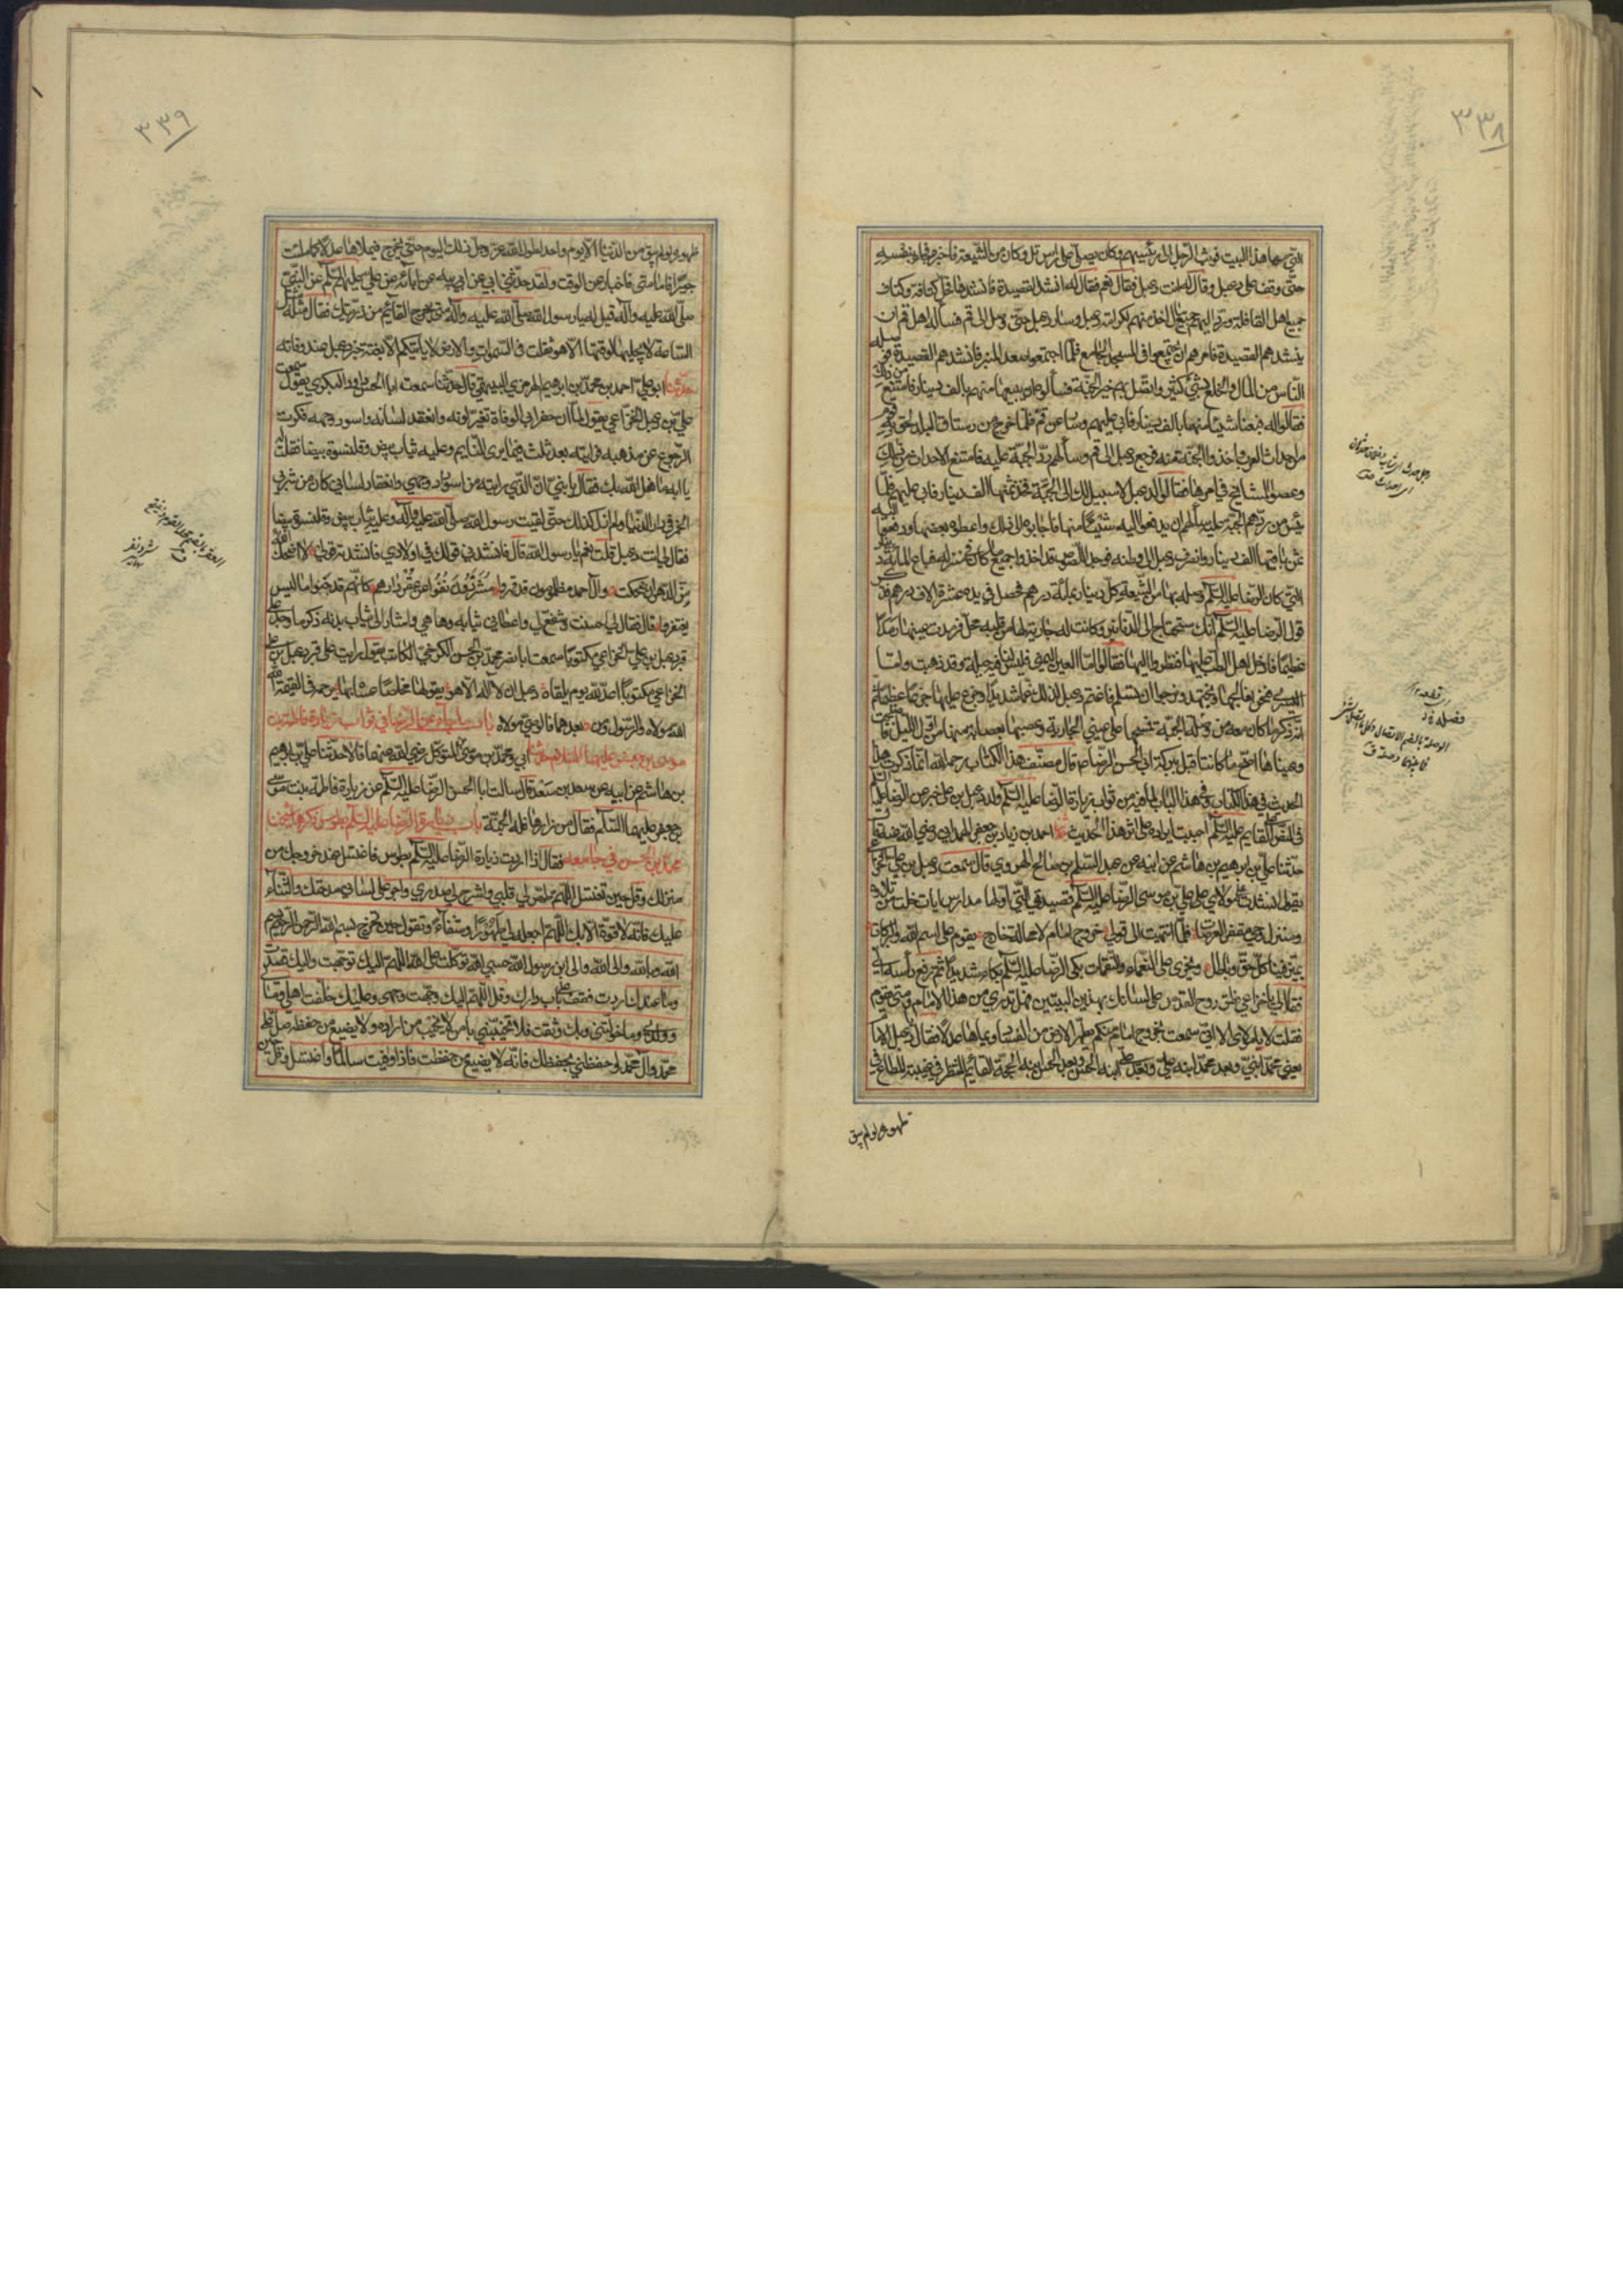 ٣٣٨
التي فيها هذا البيت فوثب الرجل الى رئيسهم وكان يصلي على راس تل وكان من الشيعة فاخبره فجاء بنفسه
حتى وقف على دعبل وقال له انت دعبل فقال نعم فقال له انشد القصيدة فانشدها فحل كتافه وكتاف
جميع اهل القافلة ورد اليهم جميع ما اخذ منهم لكرامة دعبل وسار دعبل حتى وصل الى قم فسأله اهل قم ان
ينشدهم القصيدة فامرهم ان يجتمعوا في المسجد الجامع فلما اجتمعوا صعد المنبر فانشدهم القصيدة فوصله
الناس من المال والخلع بشيء كثير واتصل بهم خبر الجبة فسألوه ان يبيعها منهم بالف دينار فامتنع من ذلك
فقالوا له فبعنا شيئا منها بالف دينار فابى عليهم وسار عن قم فلما خرج من رستاق البلد لحق به قوم
من احداث العرب واخذوا الجبة منه فرجع دعبل الى قم وسألهم رد الجبة عليه فامتنع الاحداث من ذلك
وعصوا المشايخ في امرها فقالوا لدعبل لا سبيل لك الى الجبة فخذ ثمنها الف دينار فابى عليهم فلما
يئس من ردهم الجبة عليه سألهم ان يدفعوا اليه شيئا منها فاجابوه الى ذلك واعطوه بعضها ودفعوا اليه
ثمن باقيها الف دينار وانصرف دعبل الى وطنه فوجد اللصوص قد اخذوا جميع ما كان في منزله فباع المائة دينار
التي كان الرضا عليه السلم وصله بها من الشيعة كل دينار بمائة درهم فحصل في يده عشرة الاف درهم فذكر
قول الرضا عليه السلم انك ستحتاج الى الدنانير وكانت له جارية لها من قلبه محل فرمدت عينها رمدا
عظيما فادخل اهل الطب عليها فنظروا اليها فقالوا اما العين اليمنى فليس لنا فيها حيلة وقد ذهبت واما
اليسرى فنحن نعالجها ونجتهد ونرجوا ان تسلم فاغتم دعبل لذلك غما شديدا وجزع عليها جزعا عظيما ثم
انه ذكر ما كان معه من وصلة الجبة فمسحها على عيني الجارية وعصبها بعصابة منها من اول الليل فاصبحت
وعيناها اصح مما كانتا قبل ببركة ابي الحسن الرضا ع قال مصنف هذا الكتاب رحمه الله انما ذكرت هذا
الحديث في هذا الكتاب وفي هذا الباب لما فيه من ثواب زيارة الرضا عليه السلم ولدعبل بن علي خبر عن الرضا عليه السلم
في النص على القايم عليه السلم احببت ايراده على اثر هذا الحديث حدثنا احمد بن زياد بن جعفر الهمداني رضي الله عنه قال
حدثنا علي بن ابرهيم بن هاشم عن ابيه عن عبد السلم بن صالح الهروي قال سمعت دعبل بن علي الخزاعي
يقول انشدت مولاي علي بن موسى الرضا عليه السلم قصيدتي التي اولها مدارس ايات خلت من تلاوة
ومنزل وحي مقفر العرصات فلما انتهيت الى قولي خروج امام لا محالة خارج يقوم على اسم الله والبركات
يميز فينا كل حق وباطل ويجزي على النعماء والنقمات بكى الرضا عليه السلم بكاء شديدا ثم رفع رأسه الي
فقال لي يا خزاعي نطق روح القدس على لسانك بهذين البيتين فهل تدري من هذا الامام ومتى يقوم
فقلت لا يا مولاي الا اني سمعت بخروج امام منكم يطهر الارض من الفساد ويملاها عدلا فقال يا دعبل الامام
بعدي محمد ابني وبعد محمد ابنه علي وبعد علي ابنه الحسن وبعد الحسن ابنه الحجة القائم المنتظر في غيبته المطاع في
ظهوره ولو لم يبق
٣٣٩
ظهوره ولو لم يبق من الدنيا الا يوم واحد لطول الله عز وجل ذلك اليوم حتى يخرج فيملاها عدلا كما ملئت
جورا فاما متى فاخبار عن الوقت ولقد حدثني ابي عن ابيه عن ابائه عن علي عليهم السلم عن النبي
صلى الله عليه وآله قيل له يا رسول الله صلى الله عليه وآله متى يخرج القائم من ذريتك فقال مثله مثل
الساعة لا يجليها لوقتها الا هو ثقلت في السموات والارض لا يأتيكم الا بغتة خبر دعبل عند وفاته
حدثنا ابو علي احمد بن محمد بن ابرهيم الهرمزي البيهقي قال حدثنا سمعت ابا الحسن داود البكري يقول سمعت
علي بن دعبل الخزاعي يقول لما ان حضر ابي الوفاة تغير لونه وانعقد لسانه واسود وجهه فكدت
الرجوع عن مذهبه فرايته بعد ثلث فيما يرى النايم وعليه ثياب بيض وقلنسوة بيضا فقلت له
يا ابه ما فعل الله بك فقال يا بني ان الذي رايته من اسوداد وجهي وانعقاد لساني كان من شربي
الخمر في دار الدنيا ولم ازل كذلك حتى لقيت رسول الله صلى الله عليه وآله وعليه ثياب بيض وقلنسوة بيضا
فقال لي انت دعبل قلت نعم يا رسول الله قال فانشدني قولك في اولادي فانشدته قولي لا اضحك الله
سن الدهر ان ضحكت وآل احمد مظلومون قد قهروا مشردون نفوا عن عقر دارهم كانهم قد جنوا ما ليس
يغتفروا قال فقال لي احسنت وشفع لي واعطاني ثيابه وها هي واشار الى ثياب بدنه ذكر ما وجد على
قبر دعبل بن علي الخزاعي مكتوبا سمعت ابا نصر محمد بن الحسن الكرخي الكاتب يقول رايت على قبر دعبل بن علي
الخزاعي مكتوبا اعد لله يوم يلقاه دعبل ان لا اله الا هو يقولها مخلصا عساه بها يرحمه في القيمة الله
الله مولاه والرسول ومن بعدهما فالوصي مولاه باب ما جاء عن الرضا في ثواب زيارة فاطمة بنت
موسى بن جعفر عليهما السلام حدثنا ابي ومحمد بن موسى بن المتوكل رضي الله عنهما قالا حدثنا علي بن ابرهيم
بن هاشم عن ابيه عن سعد بن سعد قال سالت ابا الحسن الرضا عليه السلم عن زيارة فاطمة بنت موسى
بن جعفر عليهما السلم فقال من زارها فله الجنة باب في زيارة الرضا عليه السلم بطوس ذكرها شيخنا
محمد بن الحسن في جامعه فقال اذا اردت زيارة الرضا عليه السلم بطوس فاغتسل عند خروجك من
منزلك وقل حين تغتسل اللهم طهرني وطهر لي قلبي واشرح لي صدري واجر على لساني مدحتك والثناء
عليك فانه لا قوة الا بك اللهم اجعله لي طهورا وشفاء وتقول حين تخرج بسم الله الرحمن الرحيم
الله وبالله والى الله والى ابن رسول الله حسبي الله توكلت على الله اللهم اليك توجهت واليك قصدت
وما عندك اردت فقف على باب دارك وقل اللهم اليك وجهت وجهي وعليك خلفت اهلي ومالي
وولدي وما خولتني وبك وثقت فلا تخيبني يا من لا يخيب من اراده ولا يضيع من حفظه صل على
محمد وآل محمد واحفظني بحفظك فانه لا يضيع من حفظت فاذا وافيت سالما فاغتسل وقل حين